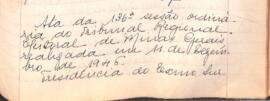 Ata da 136ª sessão ordiná-
ria do Tribunal Regional
Eleitoral de Minas Gerais,
realizada em 11 de Dezem-
bro de 1946.
Presidência do Exmo Snr.